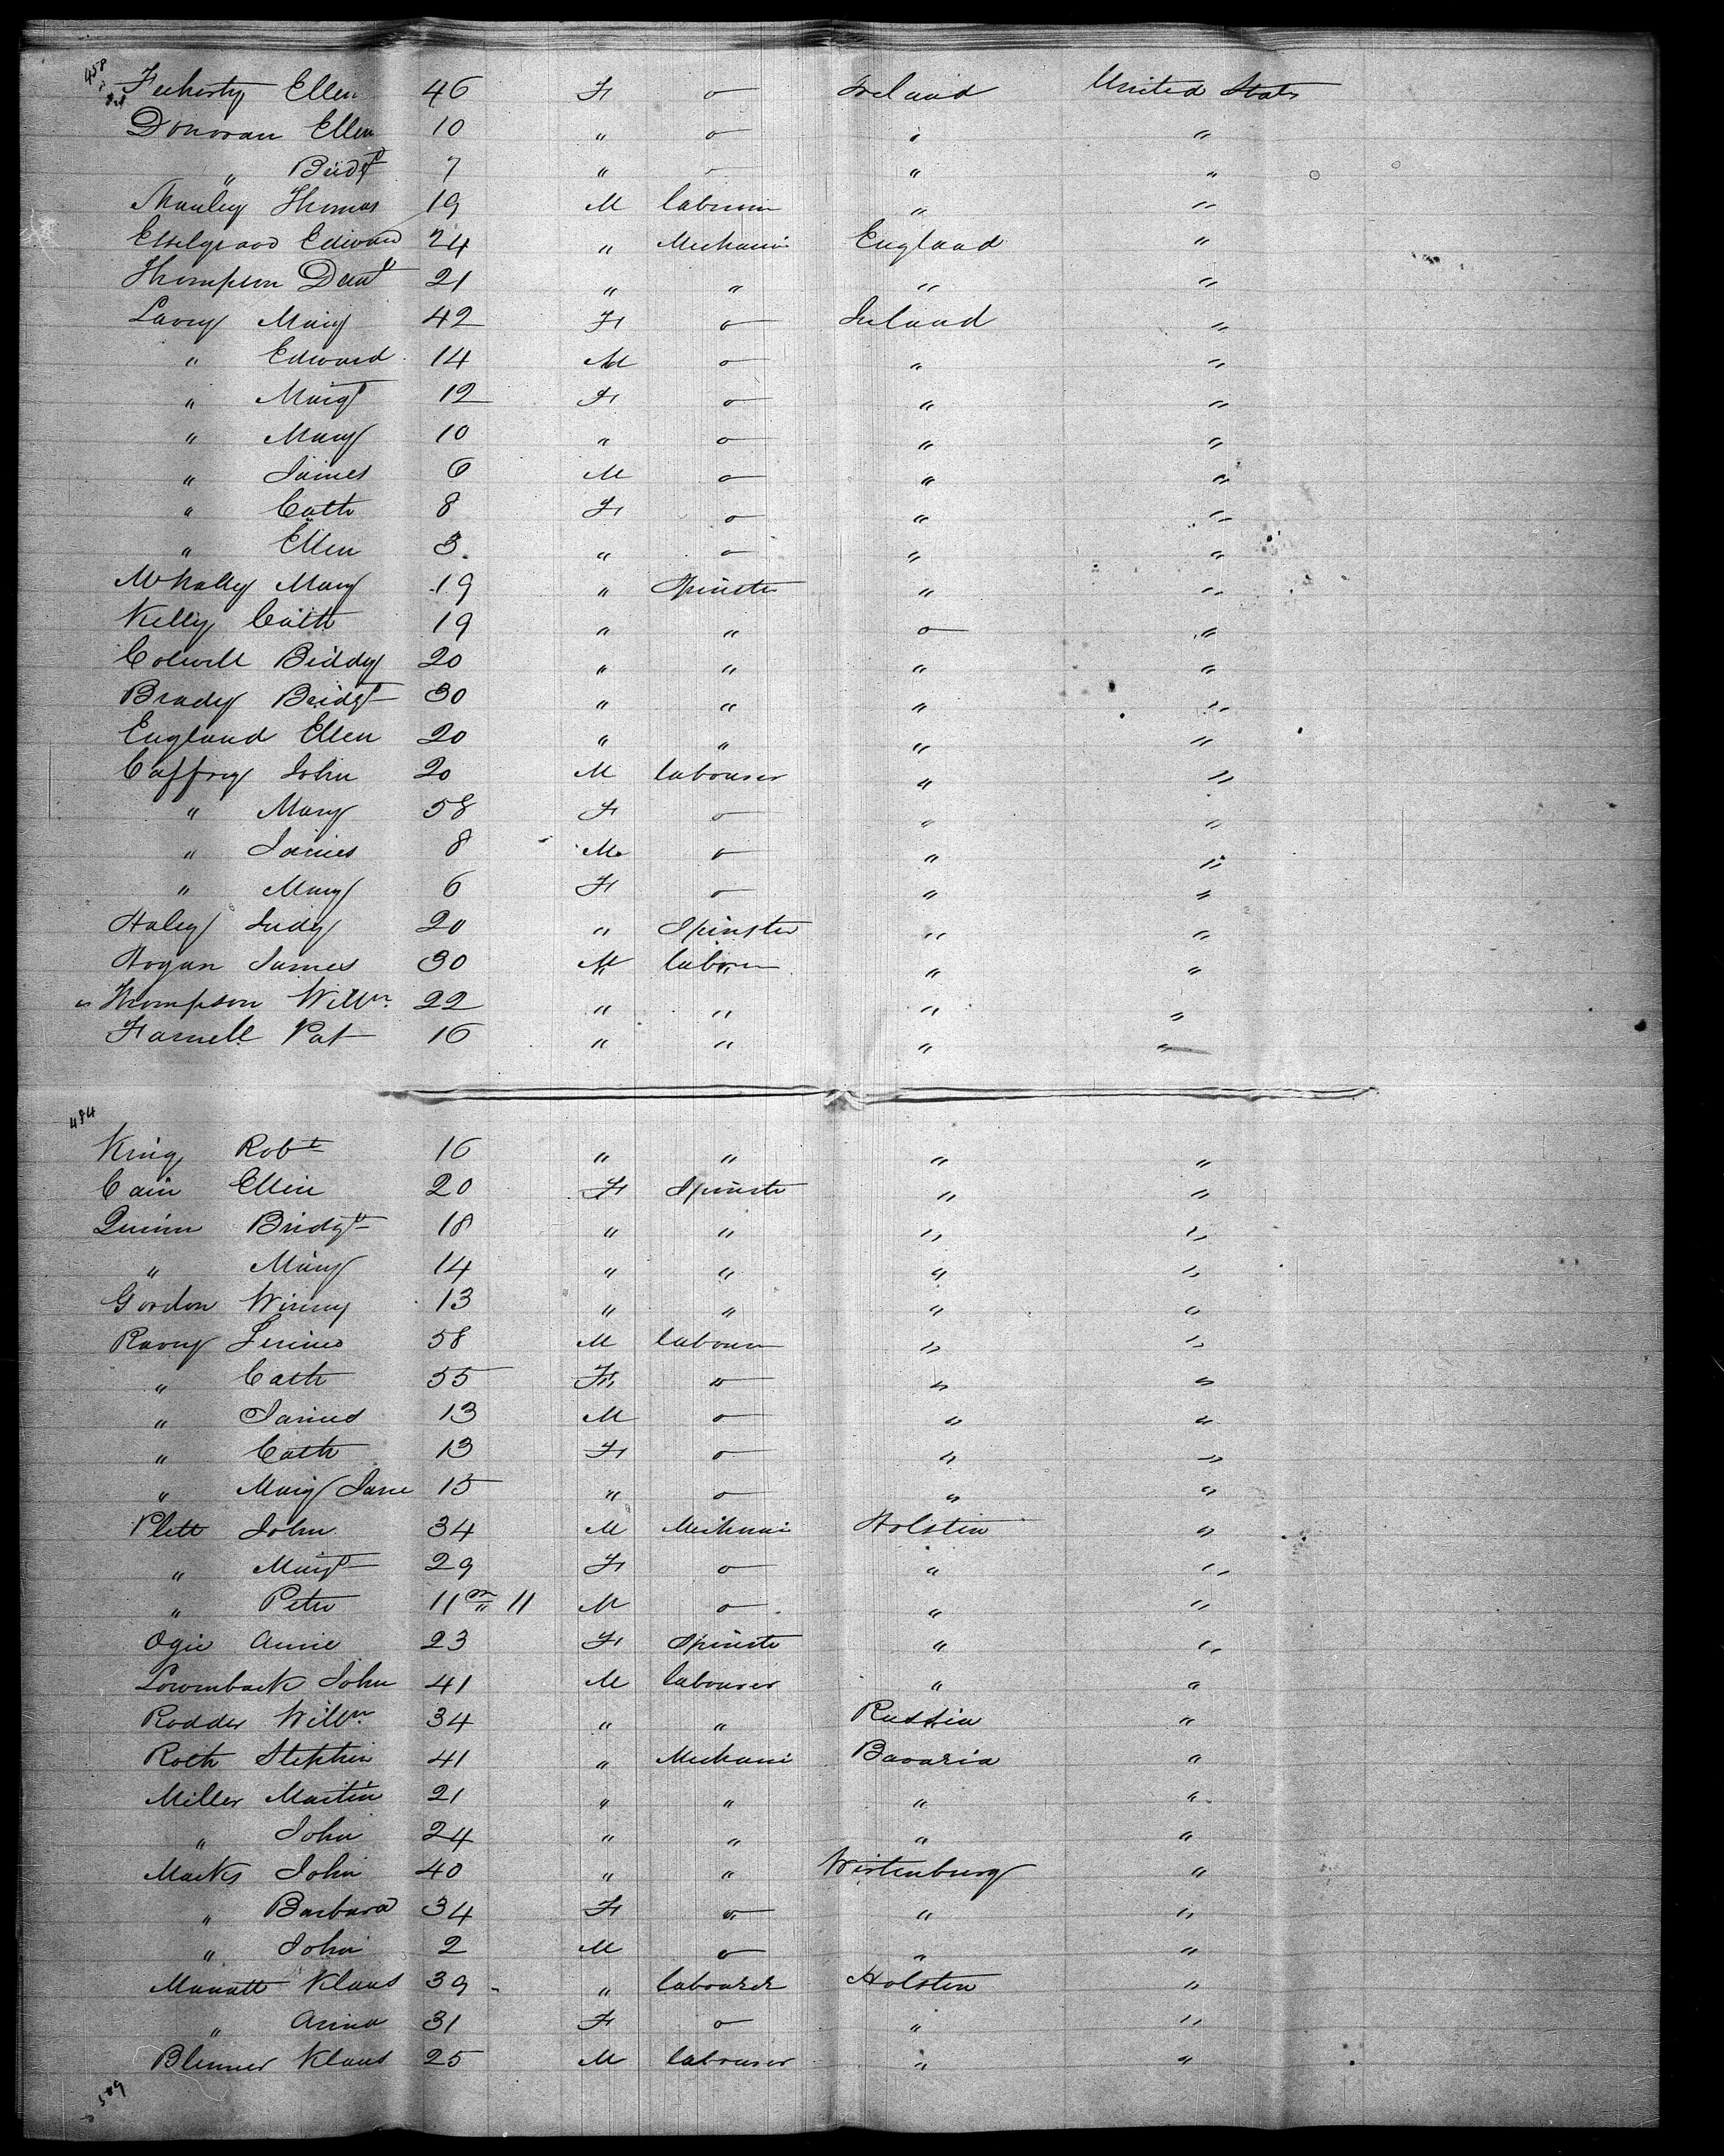 458
Feeherty Ellen 46 F o Ireland United States
Donovan Ellen 10 " o " "
" Bridgt 7 " - " "
Manley Thomas 19 M labourer " "
Edward 24 " Mechanic England "
Thompson Danl 21 " " " "
Lavey Mary 42 F o Ireland "
" Edward 14 M o " "
" Margt 12 F o " "
" Mary 10 " o " "
" James 6 M o " "
" Cath 8 F o " "
" Ellen 3 " o " "
McNally Mary 19 " Spinster " "
Kelly Cath 19 " " o "
Colwell Biddy 20 " " " "
Brady Bridgt 30 " " " "
England Ellen 20 " " " "
Caffrey John 20 M labourer " "
" Mary 58 F o " "
" James 8 M o " "
" Mary 6 F o " "
Haley Judy 20 " Spinster " "
Hogan James 30 M labourer " "
Thompson Willm 22 " " " "
Farnell Pat 16 " " " "
484
King Robt 16 " " " "
Cain Ellen 20 F Spinster " "
Quinn Bridgt 18 " " " "
" Mary 14 " " " "
Gordon Winny 13 " " " "
Ravey 58 M labourer " "
" Cath 55 F o " "
" James 13 M o " "
" Cath 13 F o " "
" Mary Jane 15 " o " "
Plett John 34 M Mechanic Holstein "
" Margt 29 F o " "
" Peter 11m 11 M o " "
Ogie Annie 23 F Spinster " "
Lowenback John 41 M labourer " "
Rodder Willm 34 " " Russia "
Roth Stephen 41 " Mechanic Bavaria "
Miller Martin 21 " " " "
" John 24 " " " "
Marks John 40 " " Wirtenburg "
" Barbara 34 F o " "
" John 2 M o " "
Manatt Klaus 39 " labourer Holsten "
" Anna 31 F o " "
Blenner Klaus 25 M labourer " "
509